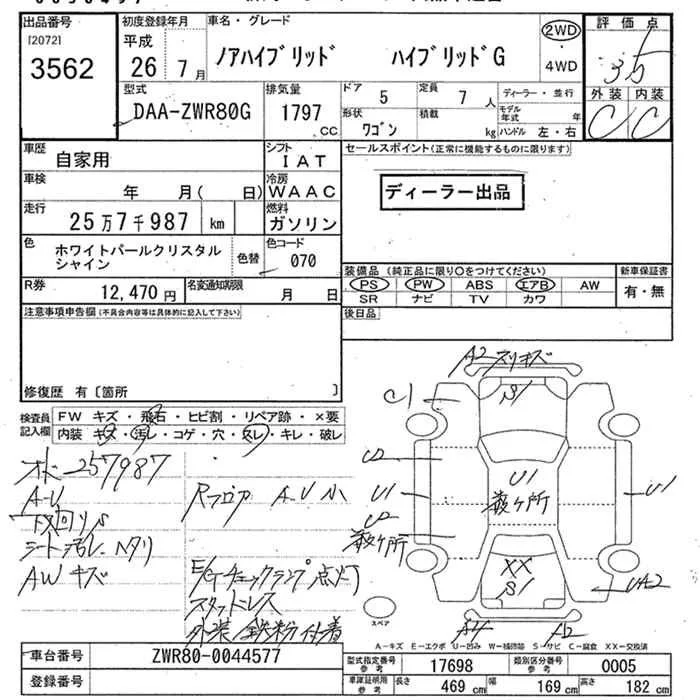 出品番号 初度登録年月 車名・グレード 2WD 評価点
[2072]
3562 平成 26 7月 ノアハイブリッド ハイブリッドG ・4WD 3.5
型式 排気量 ドア 5 定員 7人 ディーラー・並行 外装 内装
DAA-ZWR80G 1797 cc モデル年式 年 C C
形状 ワゴン 積載 kg ハンドル 左・右
車歴 自家用 シフト IAT セールスポイント(正常に機能するものに限ります)
車検 年 月( 日) 冷房 WAAC ディーラー出品
走行 25万7千987 km 燃料 ガソリン
色 ホワイトパールクリスタルシャイン 色替 色コード 070
装備品(純正品に限り○をつけてください) 新車保証書
R券 12,470円 名変通知期限 月 日 PS PW ABS エアB AW 有・無
SR ナビ TV カワ
注意事項申告欄(不具合内容等は具体的に記入して下さい) 後日品
修復歴 有〔箇所 〕
検査員記入欄 FW キズ・飛石・ヒビ割・リペア跡・×要
内装 キズ・汚レ・コゲ・穴・スレ・キレ・破レ
257987
A-U
シート汚レ、ヘタリ
AWキズ
Rフロア A-U小
E/Gチェックランプ点灯
スタットレス
外装鉄粉付着
A2 スリキズ
S1
C1
U2
U1
U2
数ヶ所
U1
数ヶ所
U1
XX
S1
UA2
スペア
A-キズ E-エクボ U-凹み W-補修跡 S-サビ C-腐食 XX-交換済
車台番号 ZWR80-0044577 型式指定番号 参考 17698 類別区分番号 参考 0005
登録番号 車庫証明用 参考 長さ 469 cm 幅 169 cm 高さ 182 cm